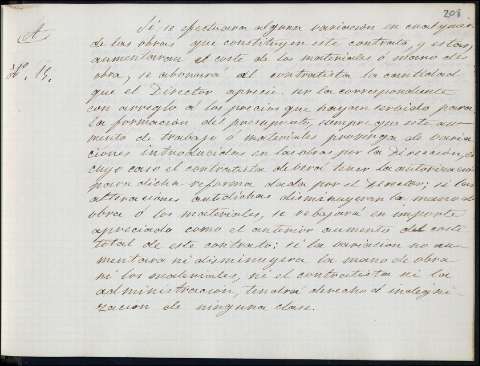 208
A
Nº. 15.
Si se efectuara alguna variacion en cualquiera
de las obras que constituyen este contrato, y estas
aumentaran el coste de los materiales ó mano de
obra, se abonará al contratista la cantidad
que el Director aprecie en la correspondiente
con arreglo á los precios que hayan servido para
la formacion del presupuesto, siempre que este au-
mento de trabajo ó materiales provenga de varia
ciones introducidas en las obras por la Direccion, en
cuyo caso el contratista deberá tener la autorizacion
para dicha reforma dada por el Director; si las
alteraciones antedichas disminuyeran la mano de
obra ó los materiales, se rebajará su importe
apreciado como el anterior aumento del coste
total de este contrato; si la variacion no au-
mentara ni disminuyera la mano de obra
ni los materiales, ni el contratista ni la
administracion, tendrá derecho á indegni-
zacion de ninguna clase.